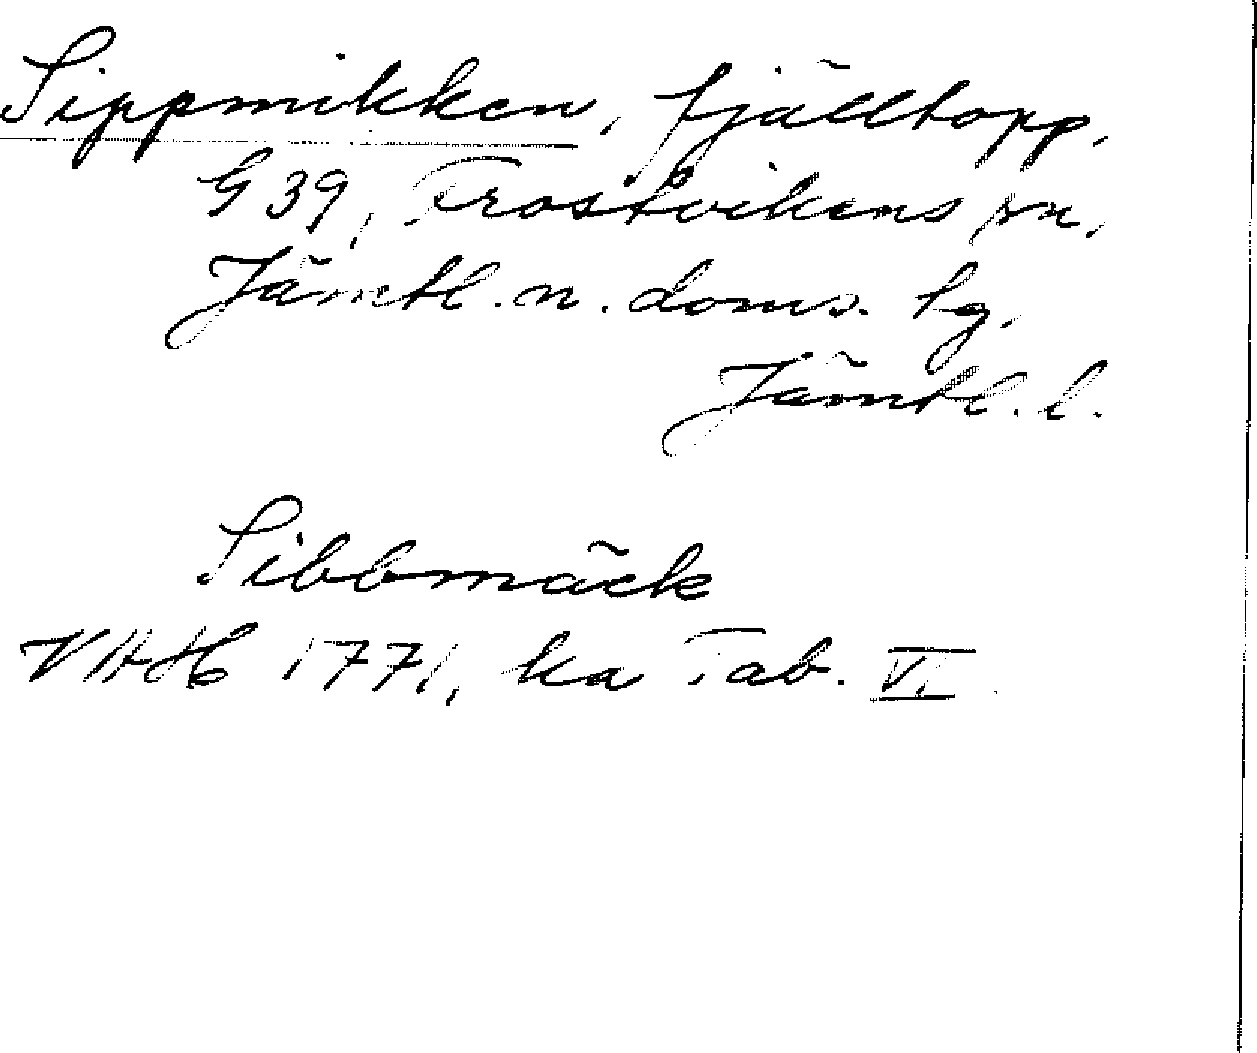 Sippmikken, fjälltopp,
G 39, Frostvikens sn.
Jämtl. n. doms. tg.
Jämtl. l.
Sibbmäck
VAH 1771, ka Tab. VI